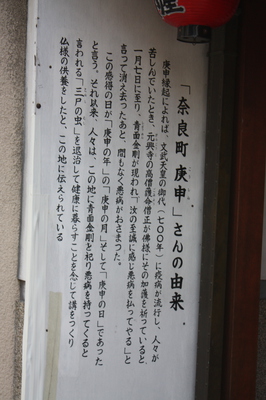 「奈良町庚申」さんの由来
庚申縁起によれば、文武天皇の御代(七〇〇年)に疫病が流行し、人々が
苦しんでいたとき、元興寺の高僧護命僧正が佛様にその加護を祈っていると
一月七日に至り、青面金剛が現われ「汝の至誠に感じ悪病を払ってやる」と
言って消え去ったあと、間もなく悪病がおさまった。
この感得の日が「庚申の年」の「庚申の月」そして「庚申の日」であった
と言う、それ以来、人々は、この地に青面金剛を祀り悪病を持ってくると
言われる「三尸の虫」を退治して健康に暮らすことを念じて講をつくり
仏様の供養をしたと、この地に伝えられている